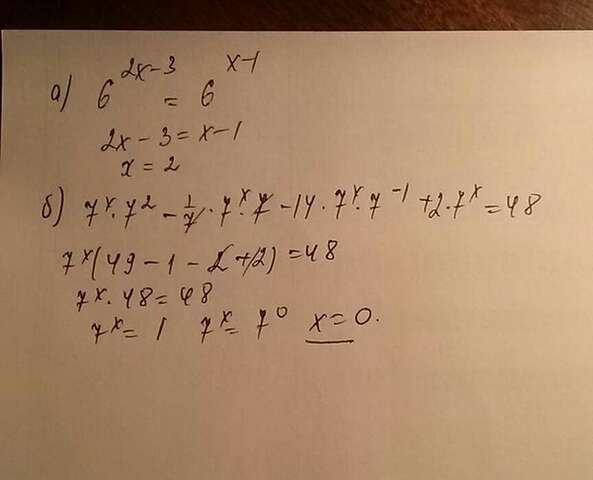 а) 6^(2x-3) = 6^(x-1)
2x - 3 = x - 1
x = 2
б) 7^x · 7^2 - 1/7 · 7^x · 7 - 14 · 7^x · 7^(-1) + 2 · 7^x = 48
7^x (49 - 1 - 2 + 2) = 48
7^x · 48 = 48
7^x = 1 7^x = 7^0 x = 0.